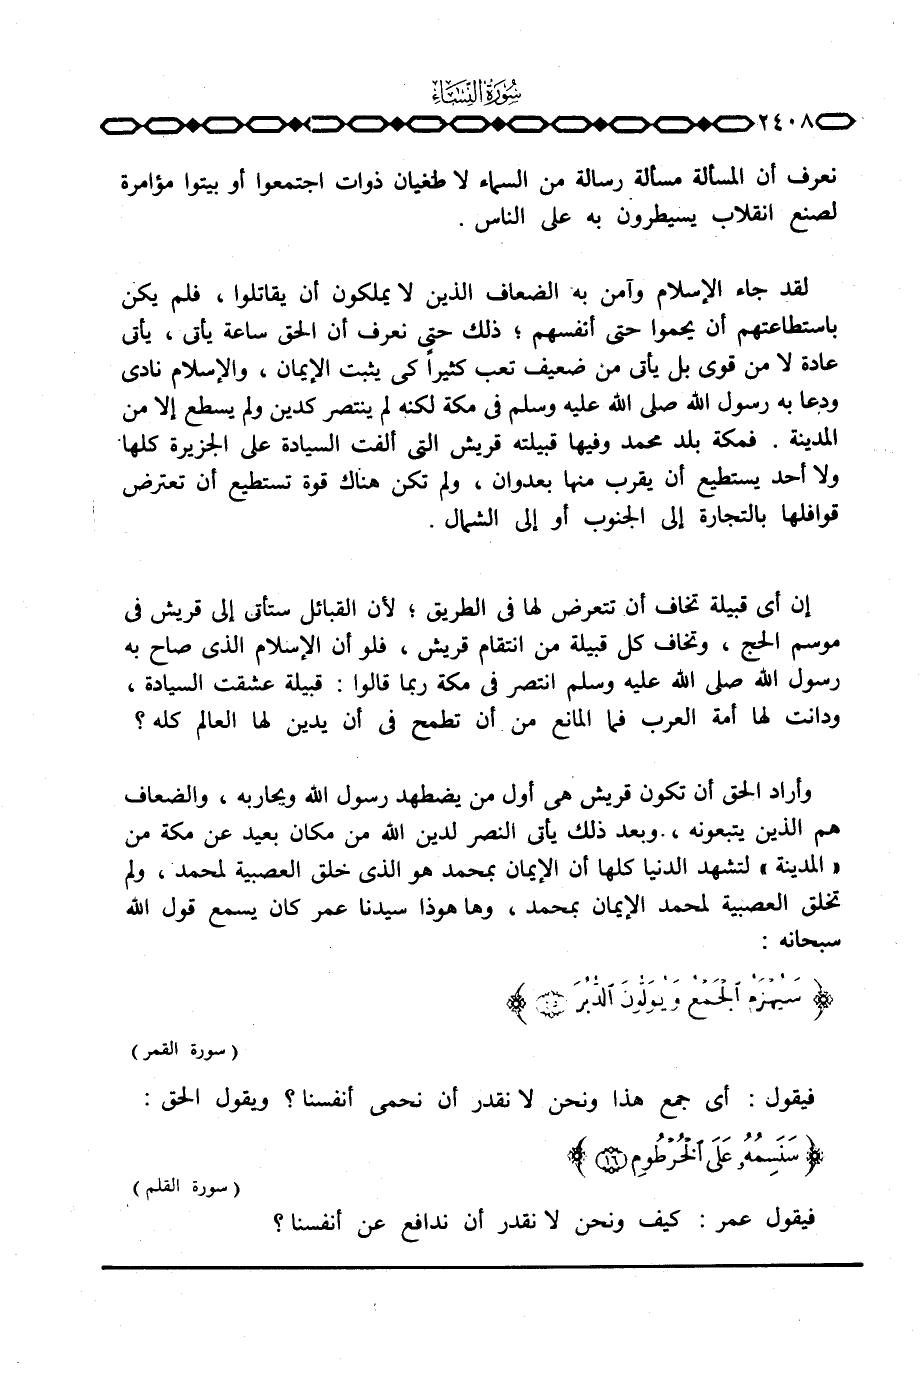 سُورَةُ النِّسَاءِ
٢٤٠٨
نعرف أن المسألة مسألة رسالة من السماء لا طغيان ذوات اجتمعوا أو بيتوا مؤامرة
لصنع انقلاب يسيطرون به على الناس .
لقد جاء الإسلام وآمن به الضعاف الذين لا يملكون أن يقاتلوا ، فلم يكن
باستطاعتهم أن يحموا حتى أنفسهم ؛ ذلك حتى نعرف أن الحق ساعة يأتى ، يأتى
عادة لا من قوى بل يأتى من ضعيف تعب كثيراً كى يثبت الإيمان ، والإسلام نادى
ودعا به رسول الله صلى الله عليه وسلم فى مكة لكنه لم ينتصر كدين ولم يسطع إلا من
المدينة . فمكة بلد محمد وفيها قبيلته قريش التى ألفت السيادة على الجزيرة كلها
ولا أحد يستطيع أن يقرب منها بعدوان ، ولم تكن هناك قوة تستطيع أن تعترض
قوافلها بالتجارة إلى الجنوب أو إلى الشمال .
إن أى قبيلة تخاف أن تتعرض لها فى الطريق ؛ لأن القبائل ستأتى إلى قريش فى
موسم الحج ، وتخاف كل قبيلة من انتقام قريش ، فلو أن الإسلام الذى صاح به
رسول الله صلى الله عليه وسلم انتصر فى مكة ربما قالوا : قبيلة عشقت السيادة ،
ودانت لها أمة العرب فما المانع من أن تطمح فى أن يدين لها العالم كله ؟
وأراد الحق أن تكون قريش هى أول من يضطهد رسول الله ويحاربه ، والضعاف
هم الذين يتبعونه ، وبعد ذلك يأتى النصر لدين الله من مكان بعيد عن مكة من
« المدينة » لتشهد الدنيا كلها أن الإيمان بمحمد هو الذى خلق العصبية لمحمد ، ولم
تخلق العصبية لمحمد الإيمان بمحمد ، وها هوذا سيدنا عمر كان يسمع قول الله
سبحانه :
﴿ سَيُهْزَمُ ٱلْجَمْعُ وَيُوَلُّونَ ٱلدُّبُرَ ٤٥ ﴾
( سورة القمر )
فيقول : أى جمع هذا ونحن لا نقدر أن نحمى أنفسنا ؟ ويقول الحق :
﴿ سَنَسِمُهُۥ عَلَى ٱلْخُرْطُومِ ١٦ ﴾
( سورة القلم )
فيقول عمر : كيف ونحن لا نقدر أن ندافع عن أنفسنا ؟